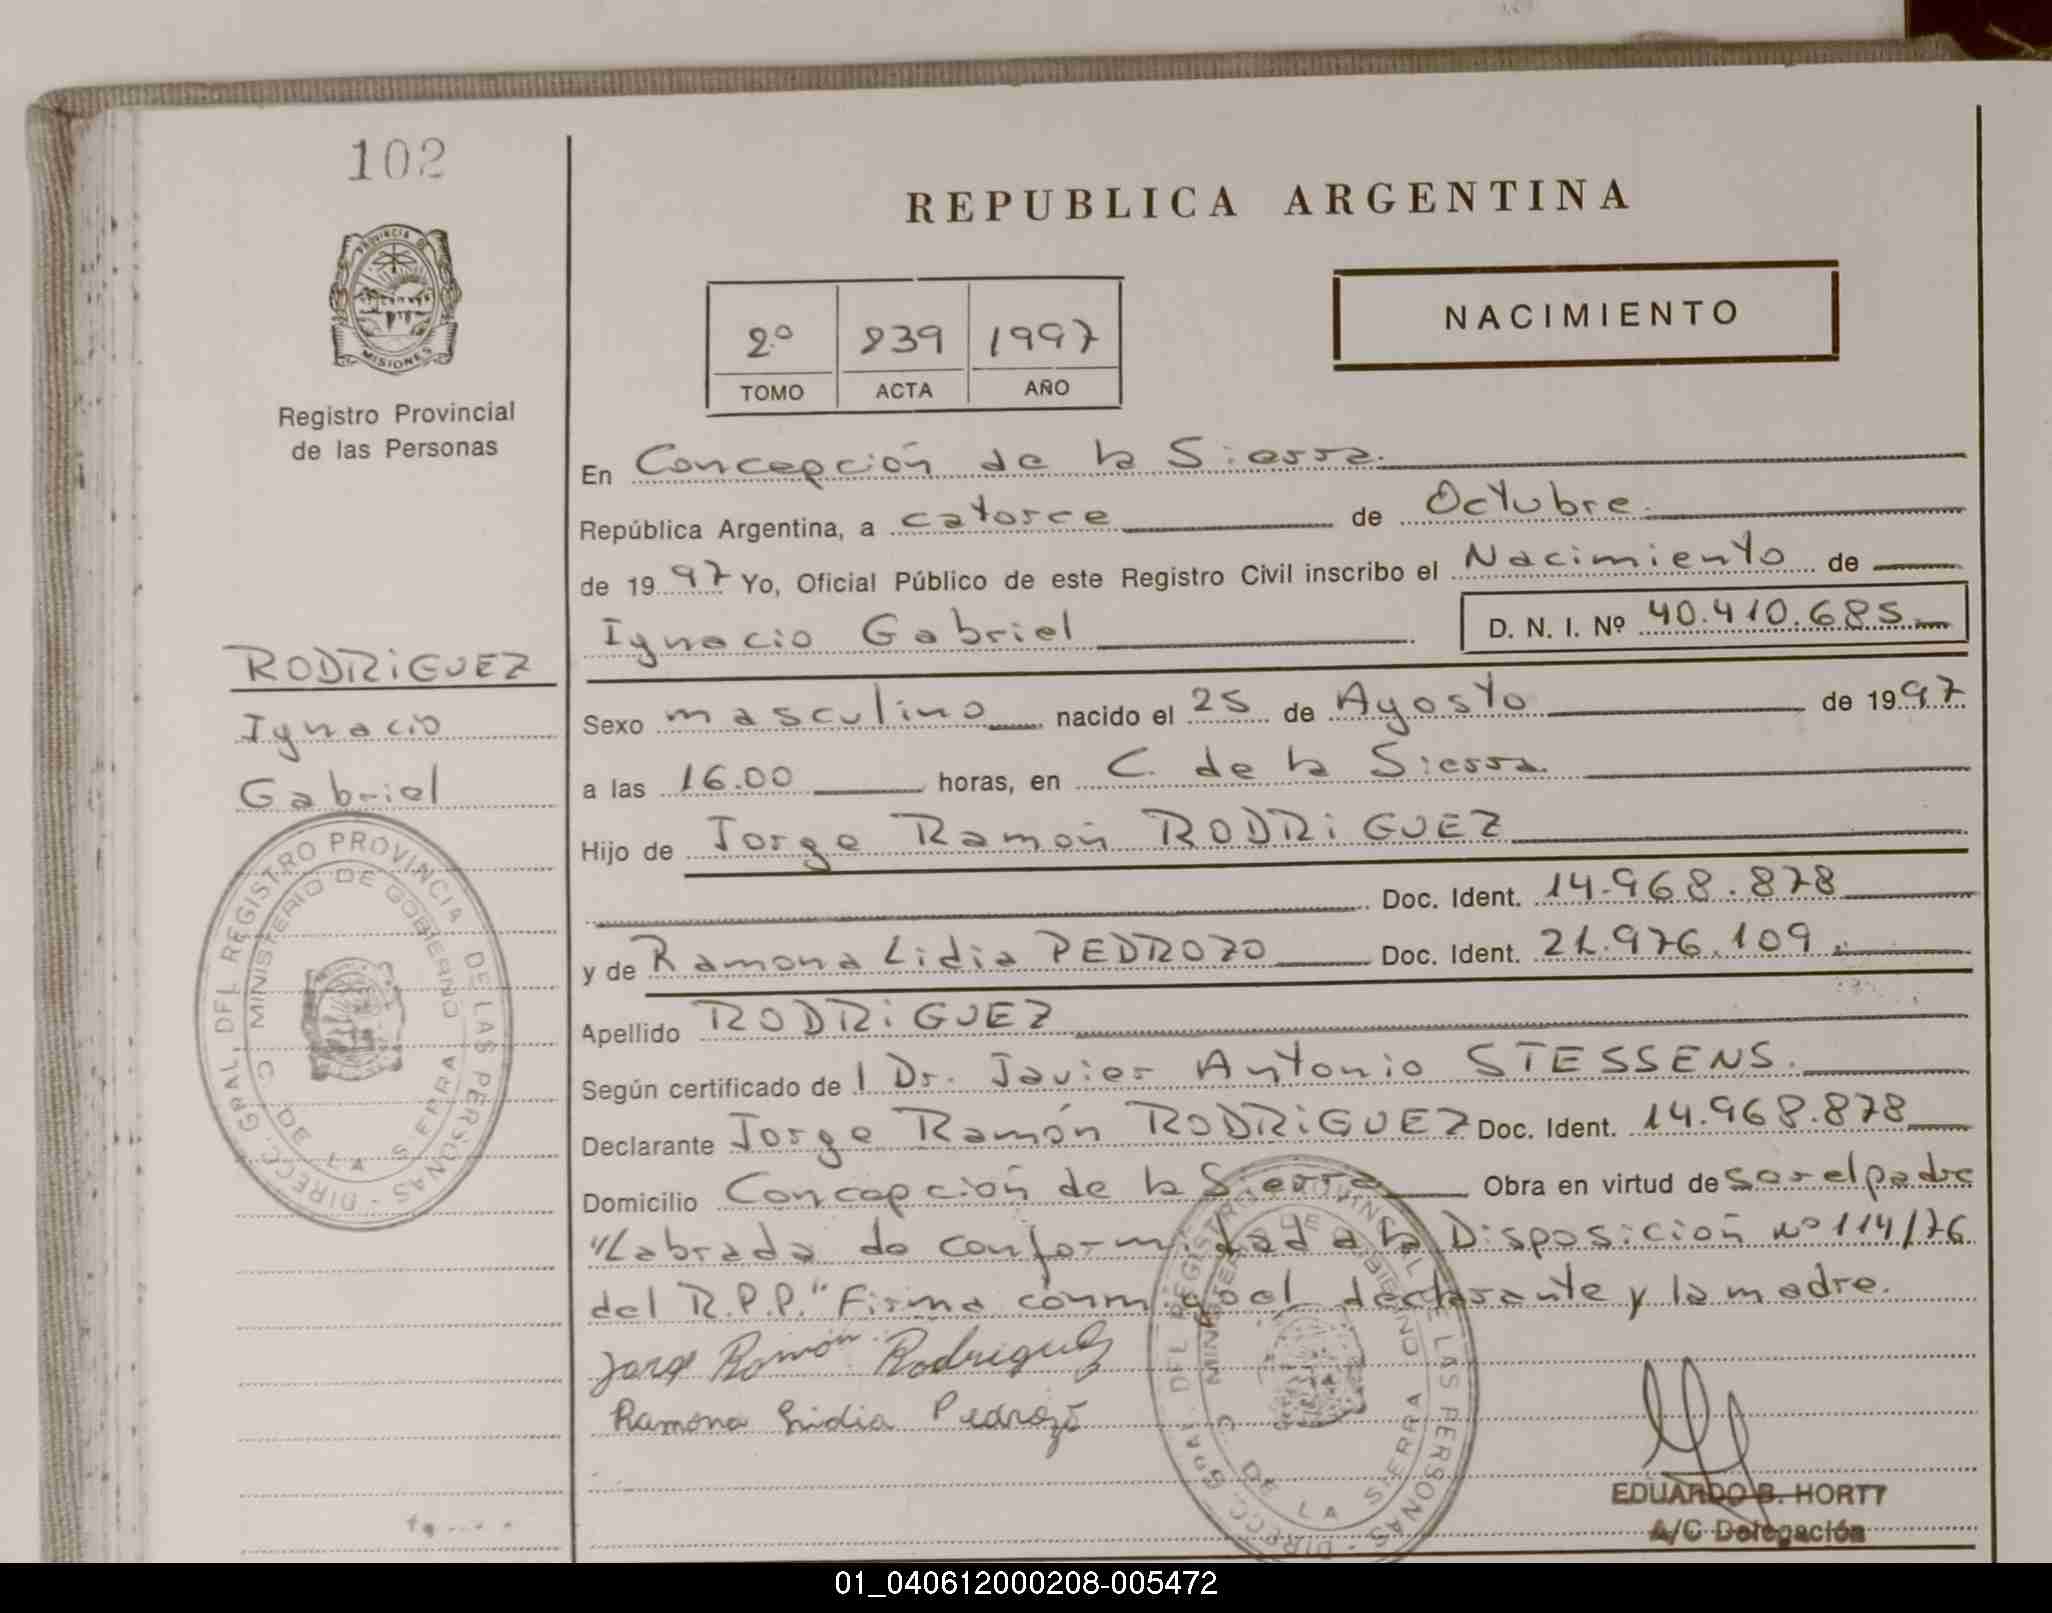 102
PROVINCIA DE
MISIONES
Registro Provincial
de las Personas
RODRIGUEZ
Ignacio
Gabriel
DIRECC. GRAL. DEL REGISTRO PROVINCIAL DE LAS PERSONAS
MINISTERIO DE GOBIERNO
C. DE LA SIERRA
REPUBLICA ARGENTINA
2º 239 1997
TOMO ACTA AÑO
NACIMIENTO
En Concepción de la Sierra.
República Argentina, a catorce de Octubre.
de 1997 Yo, Oficial Público de este Registro Civil inscribo el Nacimiento de
Ignacio Gabriel D. N. I. Nº 40.410.685
Sexo masculino nacido el 25 de Agosto de 1997
a las 16.00 horas, en C. de la Sierra.
Hijo de Jorge Ramón RODRIGUEZ
Doc. Ident. 14.968.878
y de Ramona Lidia PEDROZO Doc. Ident. 21.976.109.
Apellido RODRIGUEZ
Según certificado de l Dr. Javier Antonio STESSENS.
Declarante Jorge Ramón RODRIGUEZ Doc. Ident. 14.968.878
Domicilio Concepción de la Sierra Obra en virtud de ser el padre
"Labrada de conformidad a la Disposición Nº 114/76
del R.P.P." Firma conmigo el declarante y la madre.
Jorge Ramón Rodriguez
Ramona Lidia Pedrozo
DIRECC. GRAL. DEL REGISTRO PROVINCIAL DE LAS PERSONAS
MINISTERIO DE GOBIERNO
C. DE LA SIERRA
EDUARDO B. HORTT
A/C Delegación
01_040612000208-005472